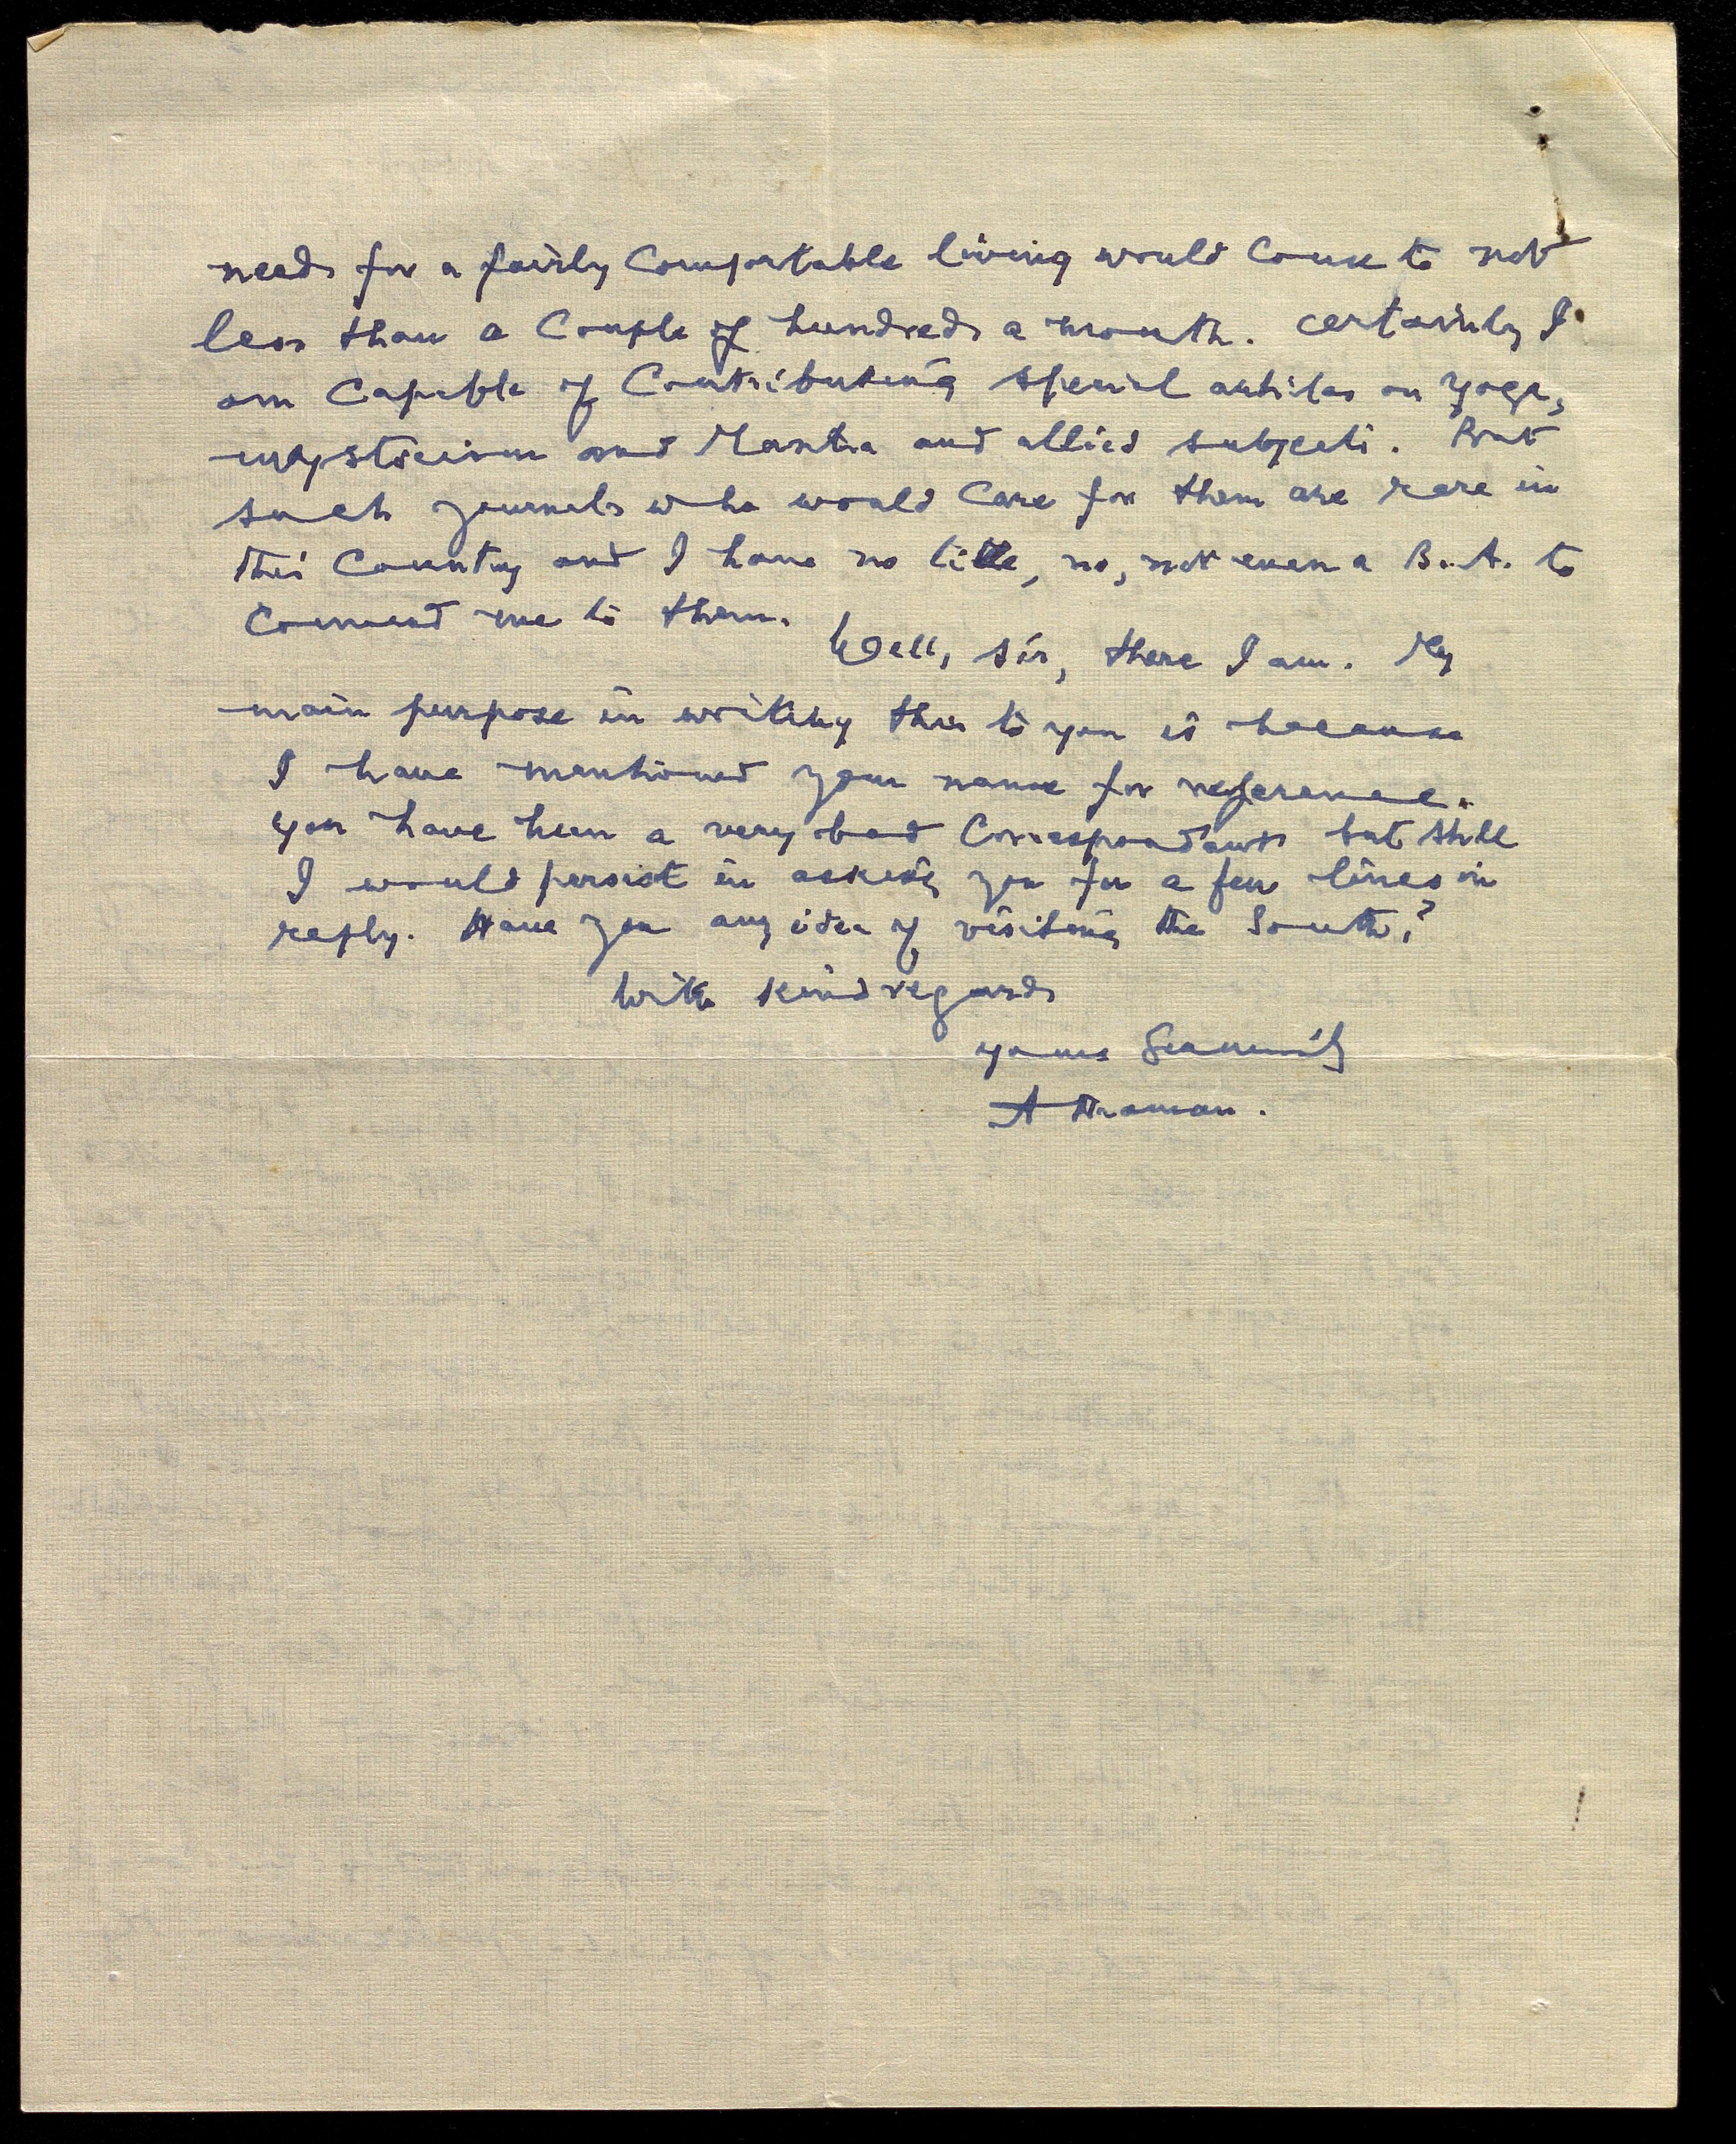 needs for a fairly Comfortable living would Come to not
less than a Couple of hundreds a month. certainly I
am Capable of Contributing special articles on yoga,
mysticism and Mantra and allied subjects. But
such journals who would Care for them are rare in
this Country and I have no title, no, not even a B.A. to
Commend me to them.
Well, sir, there I am. My
main purpose in writing this to you is because
I have mentioned your name for reference.
you have been a very bad Correspondant but still
I would persist in asking you for a few lines in
reply. Have you any idea of visiting the South?
With kind regards
yours Sincerely